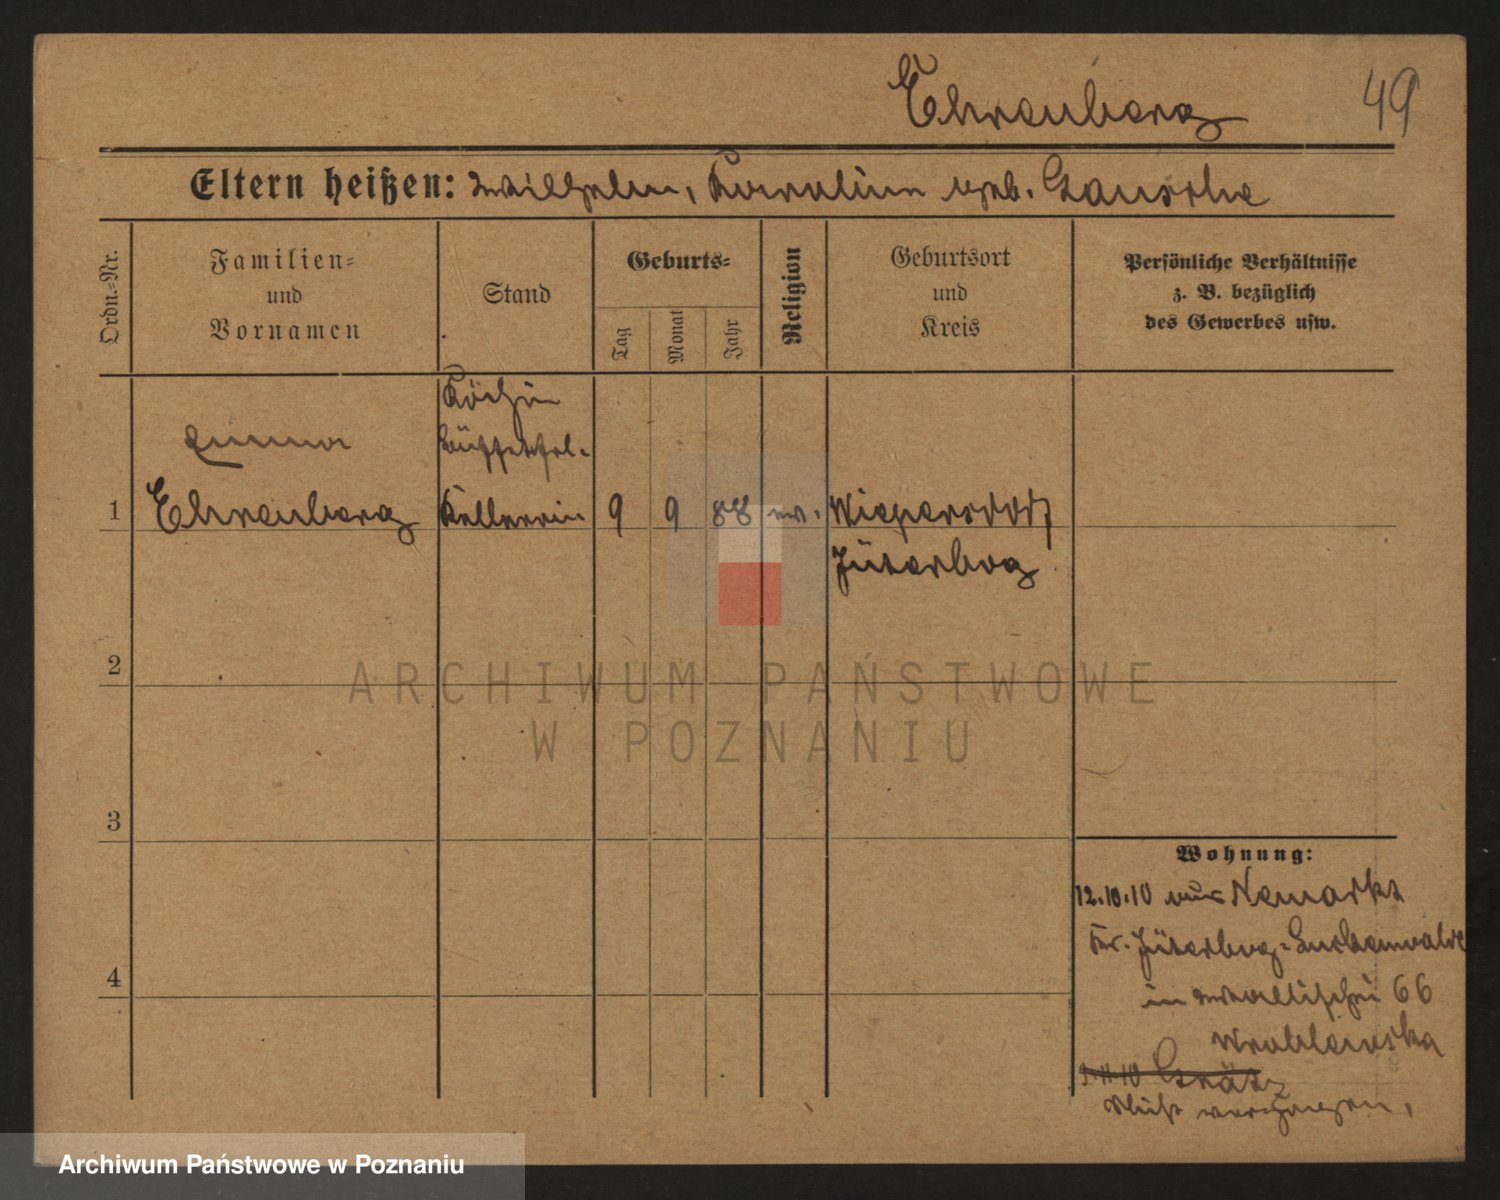 Ehrenberg
49
Eltern heißen: Wilhelm, Karoline geb. Gansche
Ordn.-Nr.
Familien-
und
Vornamen
Stand
Geburts-
Tag
Monat
Jahr
Religion
Geburtsort
und
Kreis
Persönliche Verhältnisse
z. B. bezüglich
des Gewerbes usw.
Köchin
Emma
Büffetfrl.
1
Ehrenberg
Kellnerin
9
9
88
ev.
Wiepersdorf
Jüterbog
2
3
4
Wohnung:
12.10.10 aus Nemarkt
Kr. Jüterbog-Luckenwalde
in Wallischei 66
Wroblewska
9.11.10 Grätz
Nicht verzogen.
ARCHIWUM PAŃSTWOWE
W POZNANIU
Archiwum Państwowe w Poznaniu